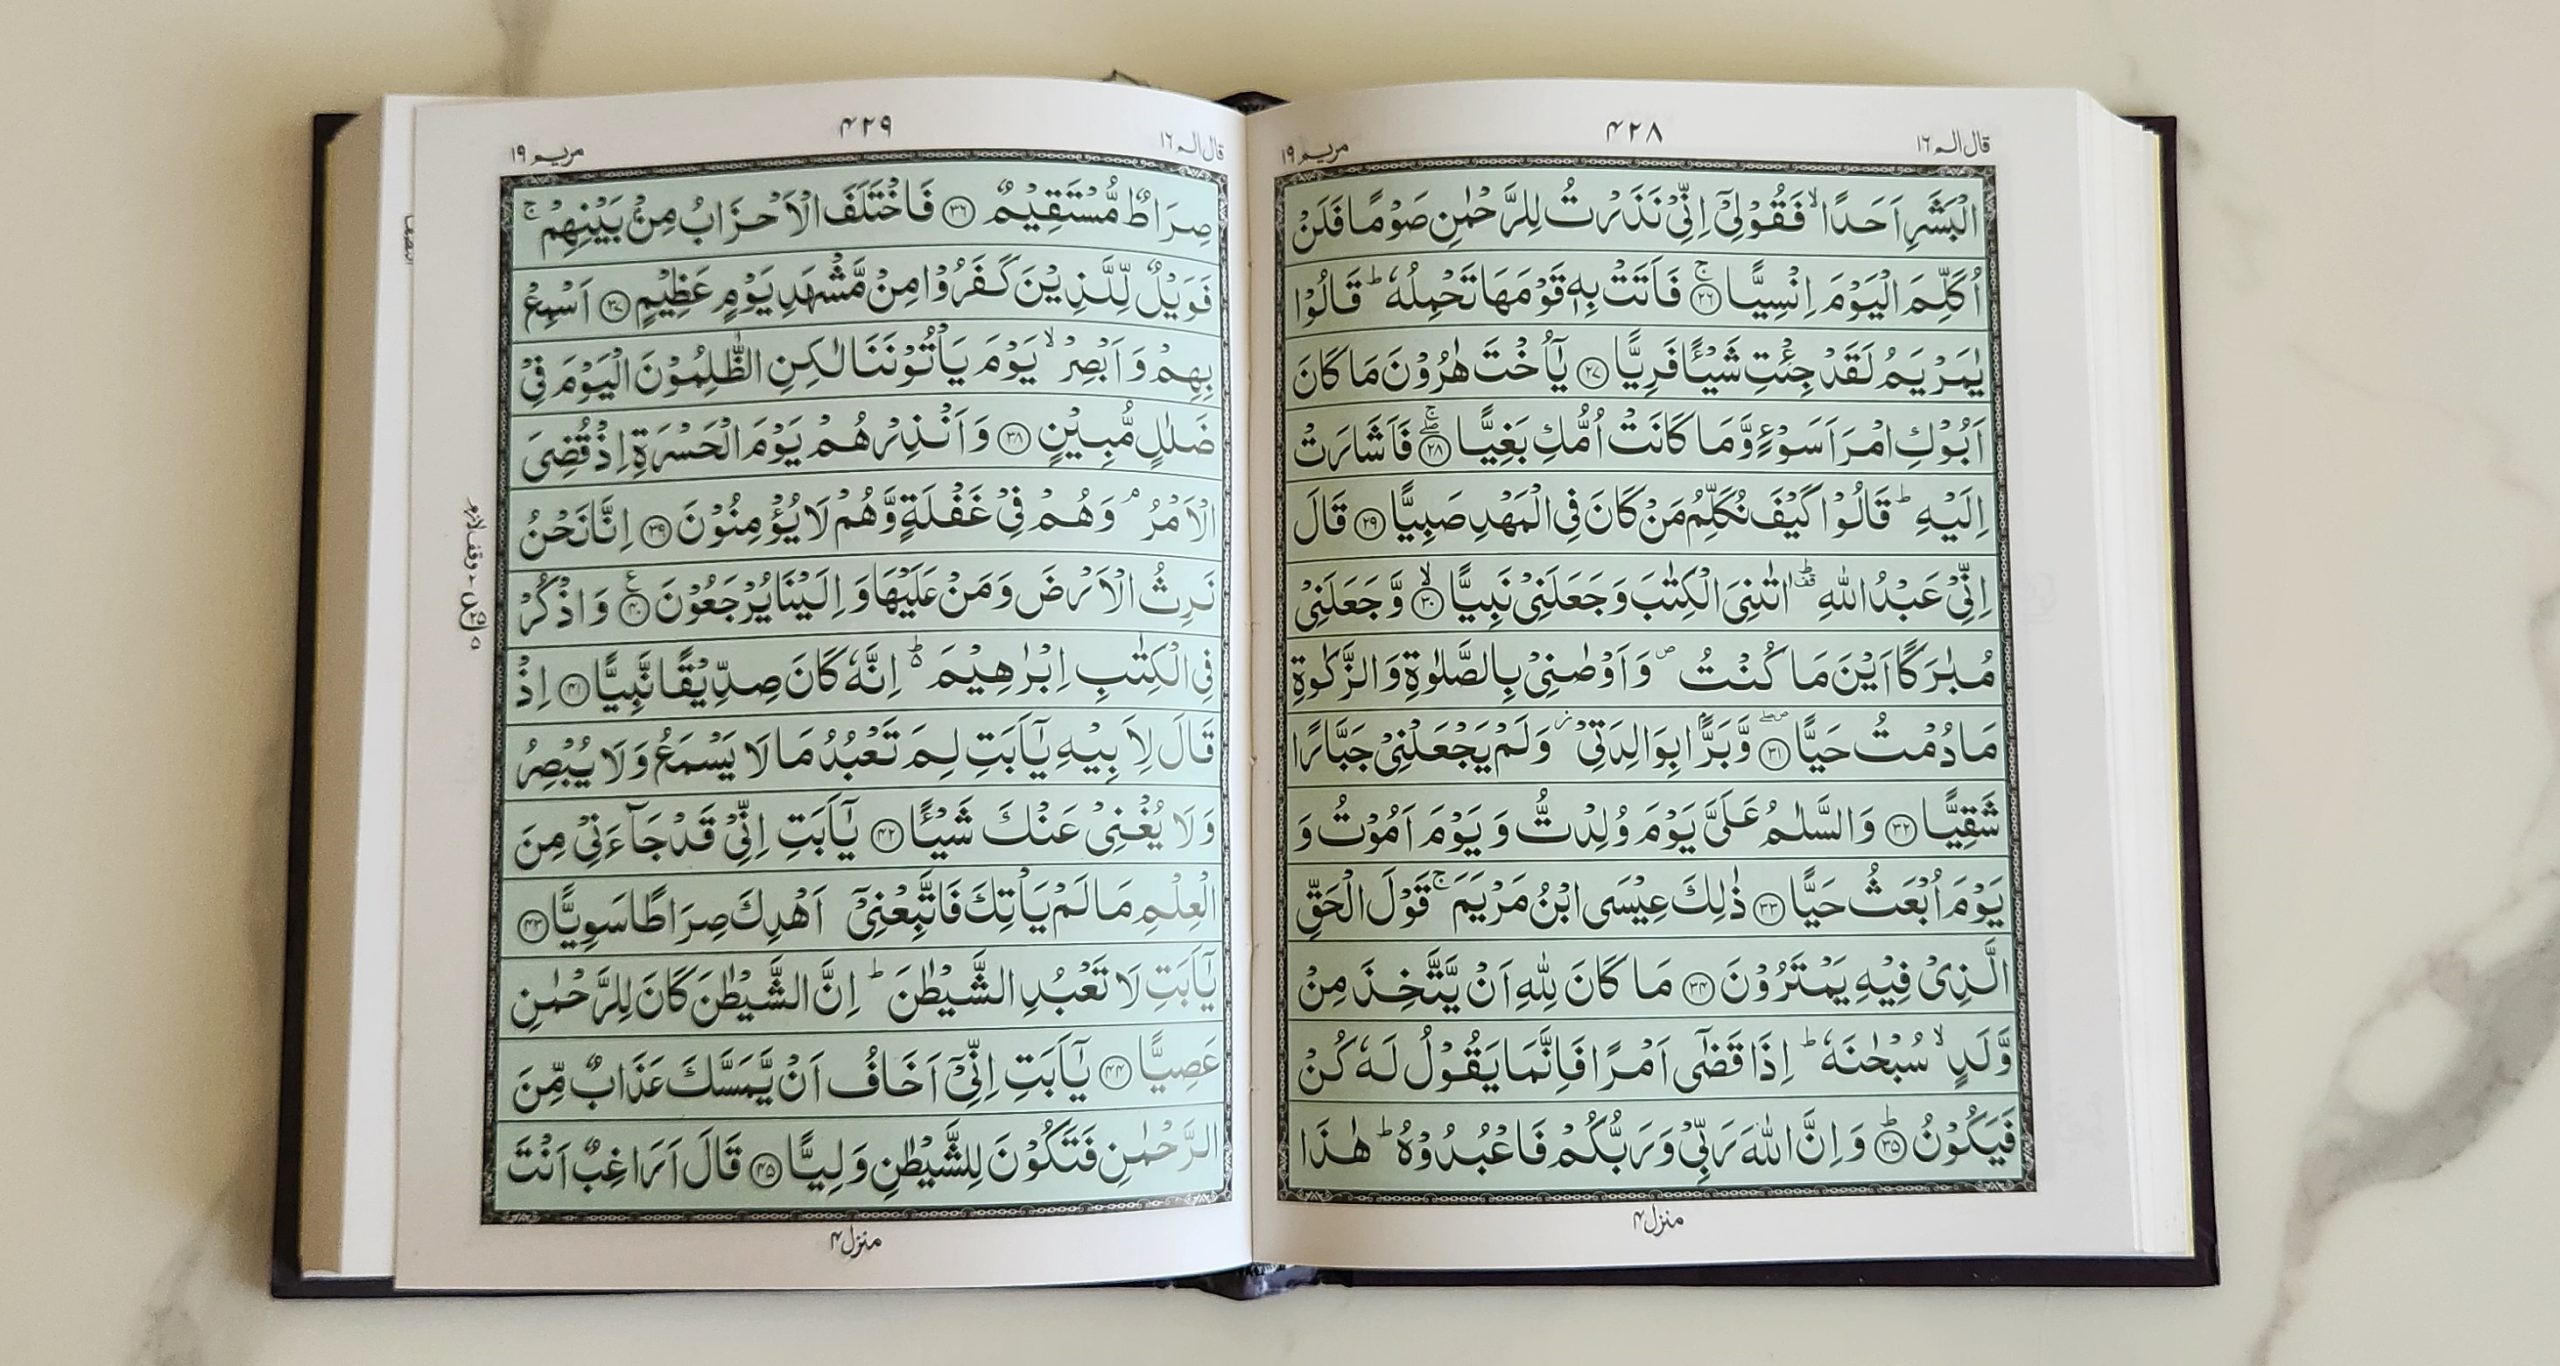 قال الم ١٦
۴۲۸
مريم ١٩
الْبَشَرِ اَحَدًا ۙ فَقُوْلِیْۤ اِنِّیْ نَذَرْتُ لِلرَّحْمٰنِ صَوْمًا فَلَنْ
اُكَلِّمَ الْیَوْمَ اِنْسِیًّا ۚ﴿۲۶﴾ فَاَتَتْ بِهٖ قَوْمَهَا تَحْمِلُهٗ ؕ قَالُوْا
یٰمَرْیَمُ لَقَدْ جِئْتِ شَیْـًٔا فَرِیًّا ﴿۲۷﴾ یٰۤاُخْتَ هٰرُوْنَ مَا كَانَ
اَبُوْكِ امْرَاَ سَوْءٍ وَّ مَا كَانَتْ اُمُّكِ بَغِیًّا ۖۚ﴿۲۸﴾ فَاَشَارَتْ
اِلَیْهِ ؕ قَالُوْا كَیْفَ نُكَلِّمُ مَنْ كَانَ فِی الْمَهْدِ صَبِیًّا ﴿۲۹﴾ قَالَ
اِنِّیْ عَبْدُ اللّٰهِ ؕ۟ اٰتٰىنِیَ الْكِتٰبَ وَ جَعَلَنِیْ نَبِیًّا ۙ﴿۳۰﴾ وَّ جَعَلَنِیْ
مُبٰرَكًا اَیْنَ مَا كُنْتُ ۪ وَ اَوْصٰنِیْ بِالصَّلٰوةِ وَ الزَّكٰوةِ
مَا دُمْتُ حَیًّا ۪ۖ﴿۳۱﴾ وَّ بَرًّۢا بِوَالِدَتِیْ ؗ وَ لَمْ یَجْعَلْنِیْ جَبَّارًا
شَقِیًّا ﴿۳۲﴾ وَ السَّلٰمُ عَلَیَّ یَوْمَ وُلِدْتُّ وَ یَوْمَ اَمُوْتُ وَ
یَوْمَ اُبْعَثُ حَیًّا ﴿۳۳﴾ ذٰلِكَ عِیْسَی ابْنُ مَرْیَمَ ۚ قَوْلَ الْحَقِّ
الَّذِیْ فِیْهِ یَمْتَرُوْنَ ﴿۳۴﴾ مَا كَانَ لِلّٰهِ اَنْ یَّتَّخِذَ مِنْ
وَّلَدٍ ۙ سُبْحٰنَهٗ ؕ اِذَا قَضٰۤی اَمْرًا فَاِنَّمَا یَقُوْلُ لَهٗ كُنْ
فَیَكُوْنُ ؕ﴿۳۵﴾ وَ اِنَّ اللّٰهَ رَبِّیْ وَ رَبُّكُمْ فَاعْبُدُوْهُ ؕ هٰذَا
منزل ۴
قال الم ١٦
۴۲۹
مريم ١٩
صِرَاطٌ مُّسْتَقِیْمٌ ﴿۳۶﴾ فَاخْتَلَفَ الْاَحْزَابُ مِنْۢ بَیْنِهِمْ ۚ
فَوَیْلٌ لِّلَّذِیْنَ كَفَرُوْا مِنْ مَّشْهَدِ یَوْمٍ عَظِیْمٍ ﴿۳۷﴾ اَسْمِعْ
بِهِمْ وَ اَبْصِرْ ۙ یَوْمَ یَاْتُوْنَنَا لٰكِنِ الظّٰلِمُوْنَ الْیَوْمَ فِیْ
ضَلٰلٍ مُّبِیْنٍ ﴿۳۸﴾ وَ اَنْذِرْهُمْ یَوْمَ الْحَسْرَةِ اِذْ قُضِیَ
الْاَمْرُ ۘ وَ هُمْ فِیْ غَفْلَةٍ وَّ هُمْ لَا یُؤْمِنُوْنَ ﴿۳۹﴾ اِنَّا نَحْنُ
نَرِثُ الْاَرْضَ وَ مَنْ عَلَیْهَا وَ اِلَیْنَا یُرْجَعُوْنَ ﴿۴۰﴾ وَ اذْكُرْ
فِی الْكِتٰبِ اِبْرٰهِیْمَ ؕ۬ اِنَّهٗ كَانَ صِدِّیْقًا نَّبِیًّا ﴿۴۱﴾ اِذْ
قَالَ لِاَبِیْهِ یٰۤاَبَتِ لِمَ تَعْبُدُ مَا لَا یَسْمَعُ وَ لَا یُبْصِرُ
وَ لَا یُغْنِیْ عَنْكَ شَیْـًٔا ﴿۴۲﴾ یٰۤاَبَتِ اِنِّیْ قَدْ جَآءَنِیْ مِنَ
الْعِلْمِ مَا لَمْ یَاْتِكَ فَاتَّبِعْنِیْۤ اَهْدِكَ صِرَاطًا سَوِیًّا ﴿۴۳﴾
یٰۤاَبَتِ لَا تَعْبُدِ الشَّیْطٰنَ ؕ اِنَّ الشَّیْطٰنَ كَانَ لِلرَّحْمٰنِ
عَصِیًّا ﴿۴۴﴾ یٰۤاَبَتِ اِنِّیْۤ اَخَافُ اَنْ یَّمَسَّكَ عَذَابٌ مِّنَ
الرَّحْمٰنِ فَتَكُوْنَ لِلشَّیْطٰنِ وَلِیًّا ﴿۴۵﴾ قَالَ اَرَاغِبٌ اَنْتَ
منزل ۴
وقف لازم